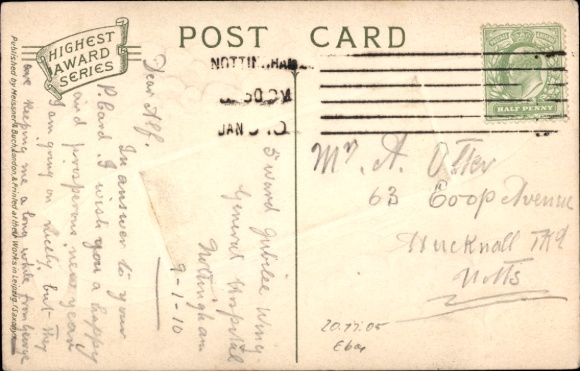 POST CARD
HIGHEST
AWARD
SERIES
Published by Meissner & Buch, London, & Printed at their Works in Leipzig (Saxony)
NOTTINGHAM
JAN
HALF PENNY
5 Ward Jubilee Wing
General Hospital
Nottingham
9-1-10
Dear Alf.
In answer to your
P. Card. I wish you a happy
and prosperous new year
I am going on nicely but they
are keeping me a long while from George
Mr. A. Otter
63 Coop Avenue
Hucknall
Notts
20.11.05
Ebay